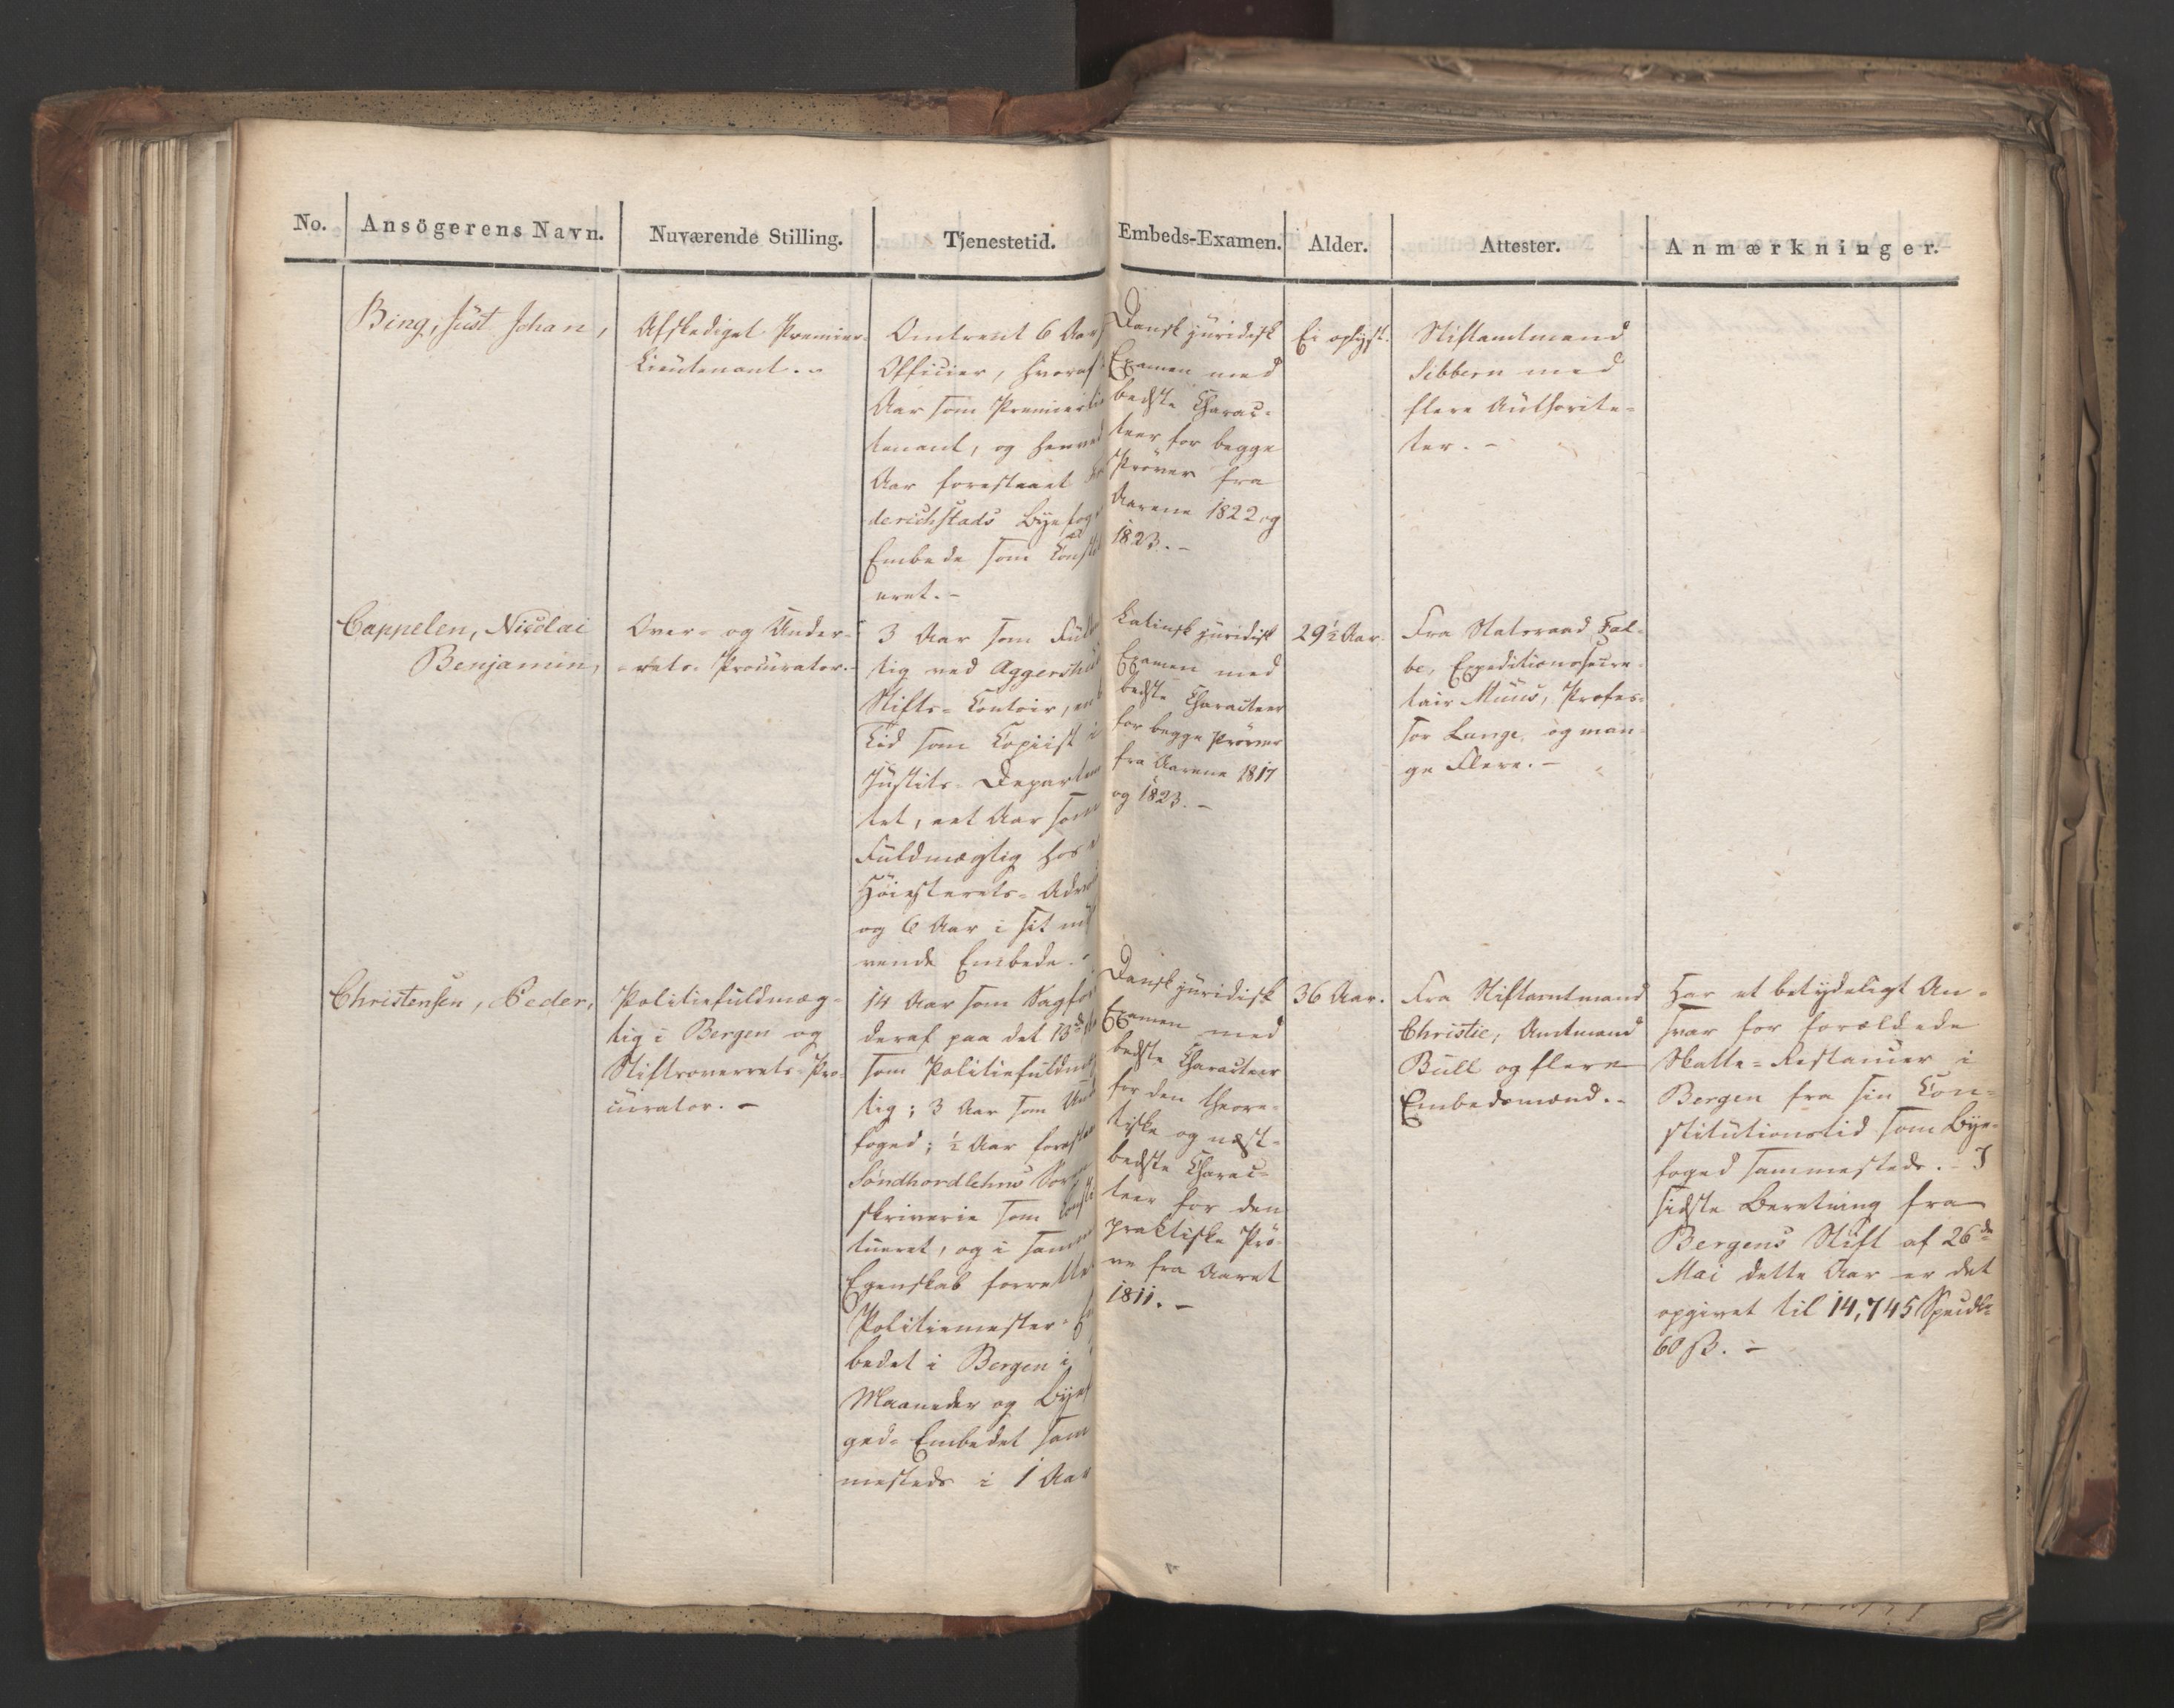 No.
Ansögerens Navn.
Nuværende Stilling.
Tjenestetid.
Embeds-Examen.
Alder.
Attester.
Anmærkninger.
Bing, Just Johan,
Afskediget Premier-
Lieutenant. -
Omtrent 6 Aar
Officier, hvoraf
Aar som Premierlie
tenant, og henved
Aar forestaaet
derichstads Byefog
Embede som Const
eret. -
Dansk juridisk
Examen med
bedste Charac-
teer for begge
Prøver fra
Aarene 1822 og
1823. -
Ei oplyst.
Stiftamtmand
Sibbern med
flere Authorite-
ter. -
Cappelen, Nicolai
Benjamin,
Over- og Under-
-rets-Procurator. -
3 Aar som Fuld
tig ved Aggershus
Stifts-Contoir, en
Tid som Copiist i
Justits-Departem
tet, eet Aar som
Fuldmægtig hos
Höiesterets-Advo
og 6 Aar i sit nu
rende Embede. -
Latinsk juridisk
Examen med
bedste Characteer
for begge Prøver
fra Aarene 1817
og 1823. -
29½ Aar.
Fra Statsraad Fal-
be, Expeditionssecre-
tair Muus, Profes-
sor Lange, og man-
ge Flere. -
Christensen, Peder,
Politiefuldmæg-
tig i Bergen og
Stiftsoverrets-Pro-
curator. -
14 Aar som Sagfö
deraf paa det 13de
som Politiefuldmæ
tig; 3 Aar som Und
foged; ½ Aar forestaa
Söndhordlehns Sor
skriverie som Consti
tueret, og i samme
Egenskab forrettet
Politiemester-
bedet i Bergen i
Maaneder og Byef
geds-Embedet sam
mesteds i 1 Aar
Dansk juridisk
Examen med
bedste Characteer
for den theore-
tiske og næst-
bedste Charac-
teer for den
praktiske Prö-
ve fra Aaret
1811. -
36 Aar.
Fra Stiftamtmand
Christie, Amtmand
Bull og flere
Embedsmænd. -
Har et betydeligt An-
svar for forældede
Skatte-Restancer i
Bergen fra sin Con-
stitutionstid som Bye-
foged sammesteds. - I
sidste Beretning fra
Bergens Stift af 26de
Mai dette Aar er det
opgivet til 14,745 Specidlr
60 ß. -